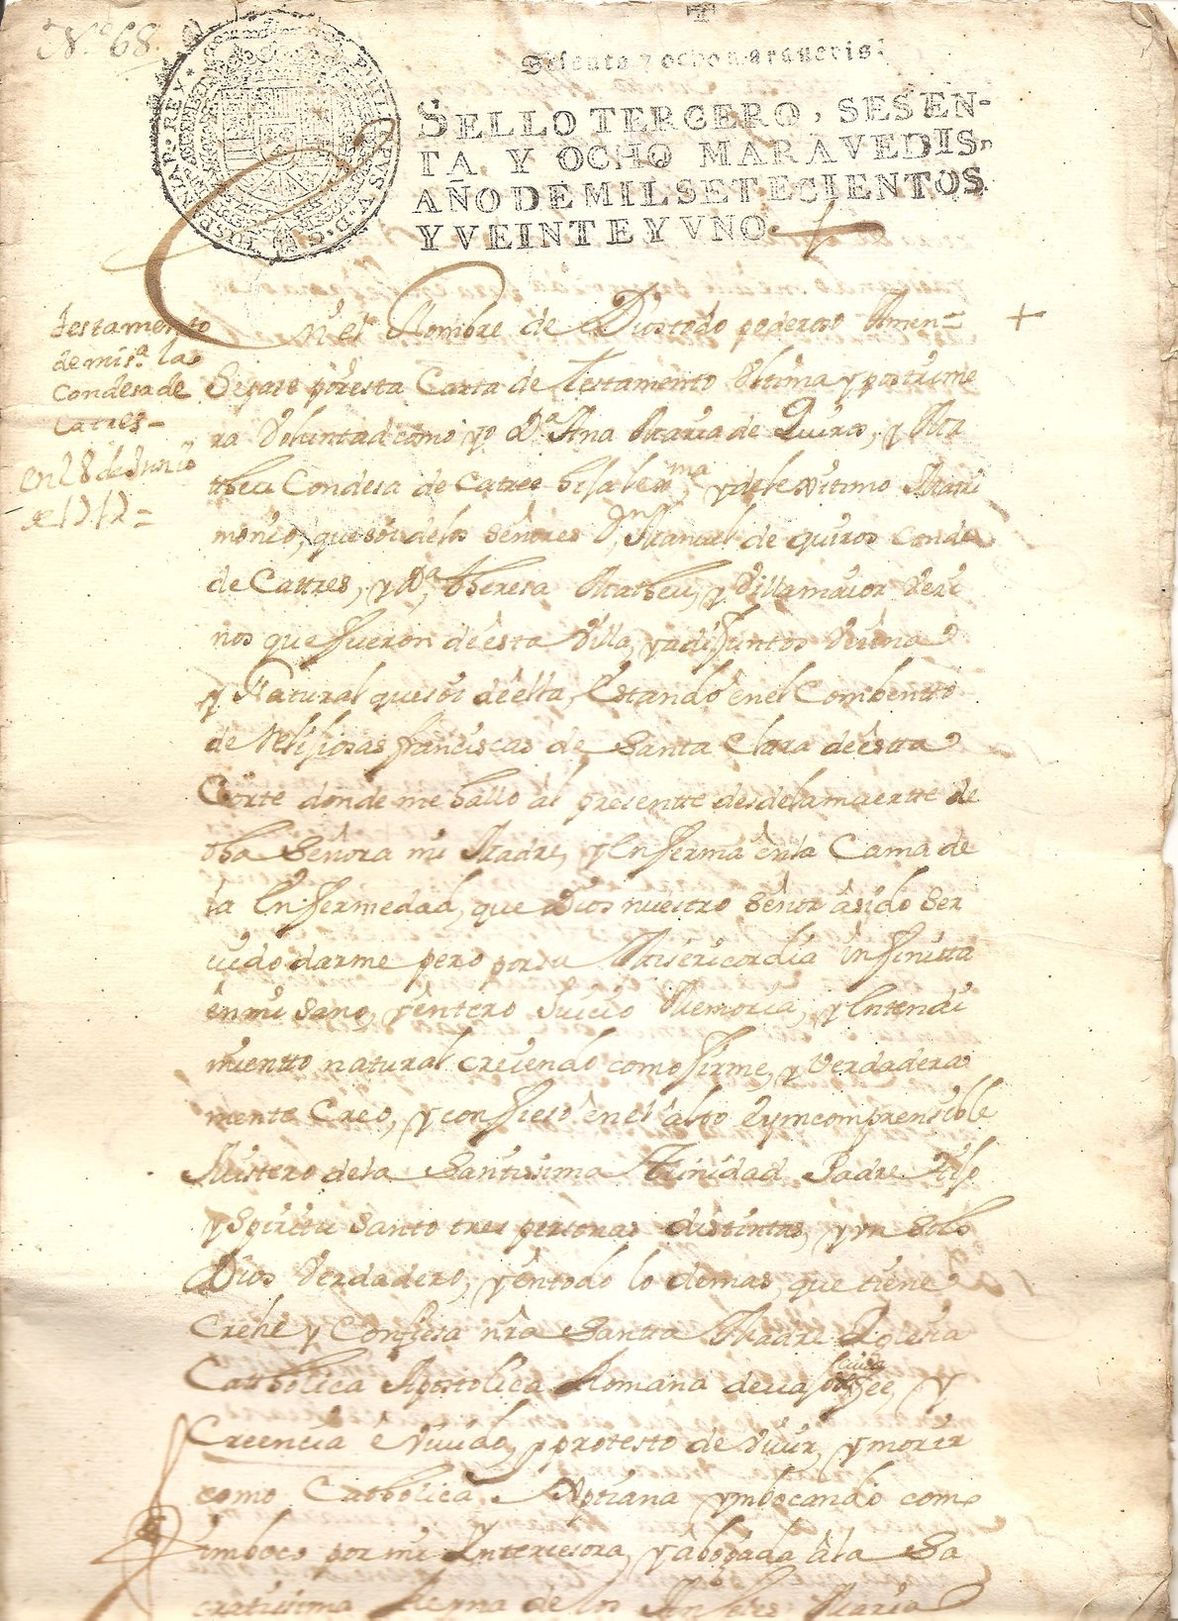 N.º 68.
PHILIPPUS V D. G. HISPANIAR. REX
Sesenta y ocho maravedis.
SELLO TERCERO, SESEN-
TA Y OCHO MARAVEDIS,
AÑO DE MIL SETECIENTOS
Y VEINTE Y VNO.
testamento
de mi s.ª la
Condesa de
Catres =
en 28 de Junio
En el Nombre de Dios todo poderoso Amen =
Sepase por esta Carta de Testamento vltima y postrime
ra Voluntad como yo D.ª Ana Maria de Quiros, y Ma
theu Condesa de Catres hija lex.ma y de lexitimo Matri
monio, que soi de los señores D.n Manuel de quiros Conde
de Catres, y D.ª theresa Matheu, y Villamaior Vezi
nos que fueron de esta Villa, y adijuntos Vezina
y Natural que soi de ella, Estando en el Combentto
de Relijiosas franciscas de Santa Clara de estta
Corte donde me hallo al presentte desde la muertte de
dha Señora mi Madre, y Enferma en la Cama de
la Enfermedad, que Dios nuestro señor a sido Ser
uido darme pero por su Misericordia infinitta
en mi sano, y entero Juicio Memoria, y Entendi
mientto natural creiendo como firme, y Verdadera
mente Creo, y confieso en el alto e yncomprensible
Misterio de la Santissima Trinidad Padre Hijo
y Spiritu Santo tres personas distintas, y vn solo
Dios Verdadero, y en todo lo demas, que tiene
Crehe y Confiesa nra Santta Madre Iglesia
Catholica Apostolica Romana devajo
cuia
fee, y
Creencia e viuido, y protesto de viuir, y morir
como Catholica Xptiana ymbocando como
imboco por mi Intercesora, y abogada a la Sa
cratissima Reyna de los Anjeles Maria